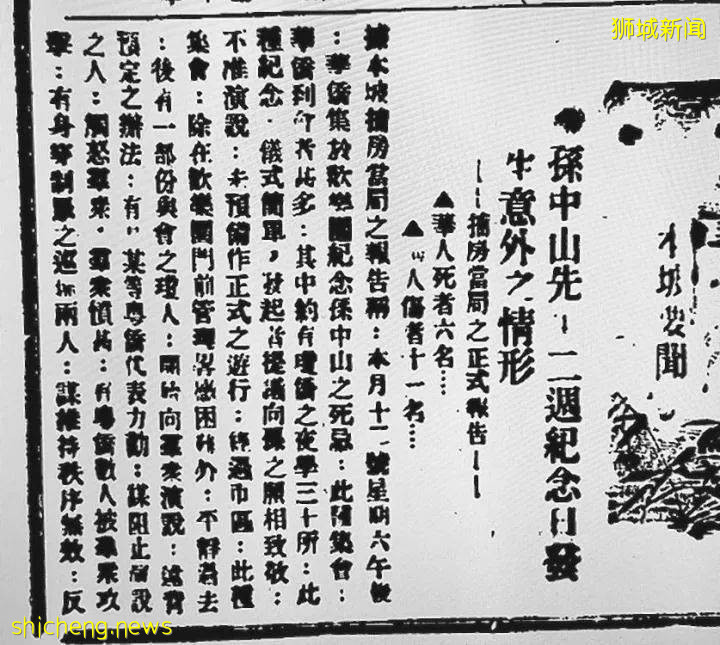 狮城新闻
本坡要聞
●孫中山先 二週紀念日發
生意外之情形
——捕房當局之正式報告——
▲華人死者六名…
▲ 人傷者十一名…
據本坡捕房當局之報告稱:本月十二號星期六午後
:華僑集於歡樂園紀念孫中山之死忌:此種集會:
華僑到會者甚多:其中約有瓊僑之夜學三十所:此
種紀念.儀式簡單,發起者提議向孫之 相致敬:
不准演說:未預備作正式之遊行:經過市區:此種
集會:除在歡樂園門前管理畧感困難外:平靜過去
:後有一部份與會之瓊人:開始向羣衆演說:違背
預定之辦法:有 某等粵僑代表力勸:謀阻止演說
之人:觸怒羣衆.羣衆憤甚:有粵僑數人被羣衆攻
擊:有身穿制服之巡捕兩人:謀維持秩序無效:反
shicheng.news